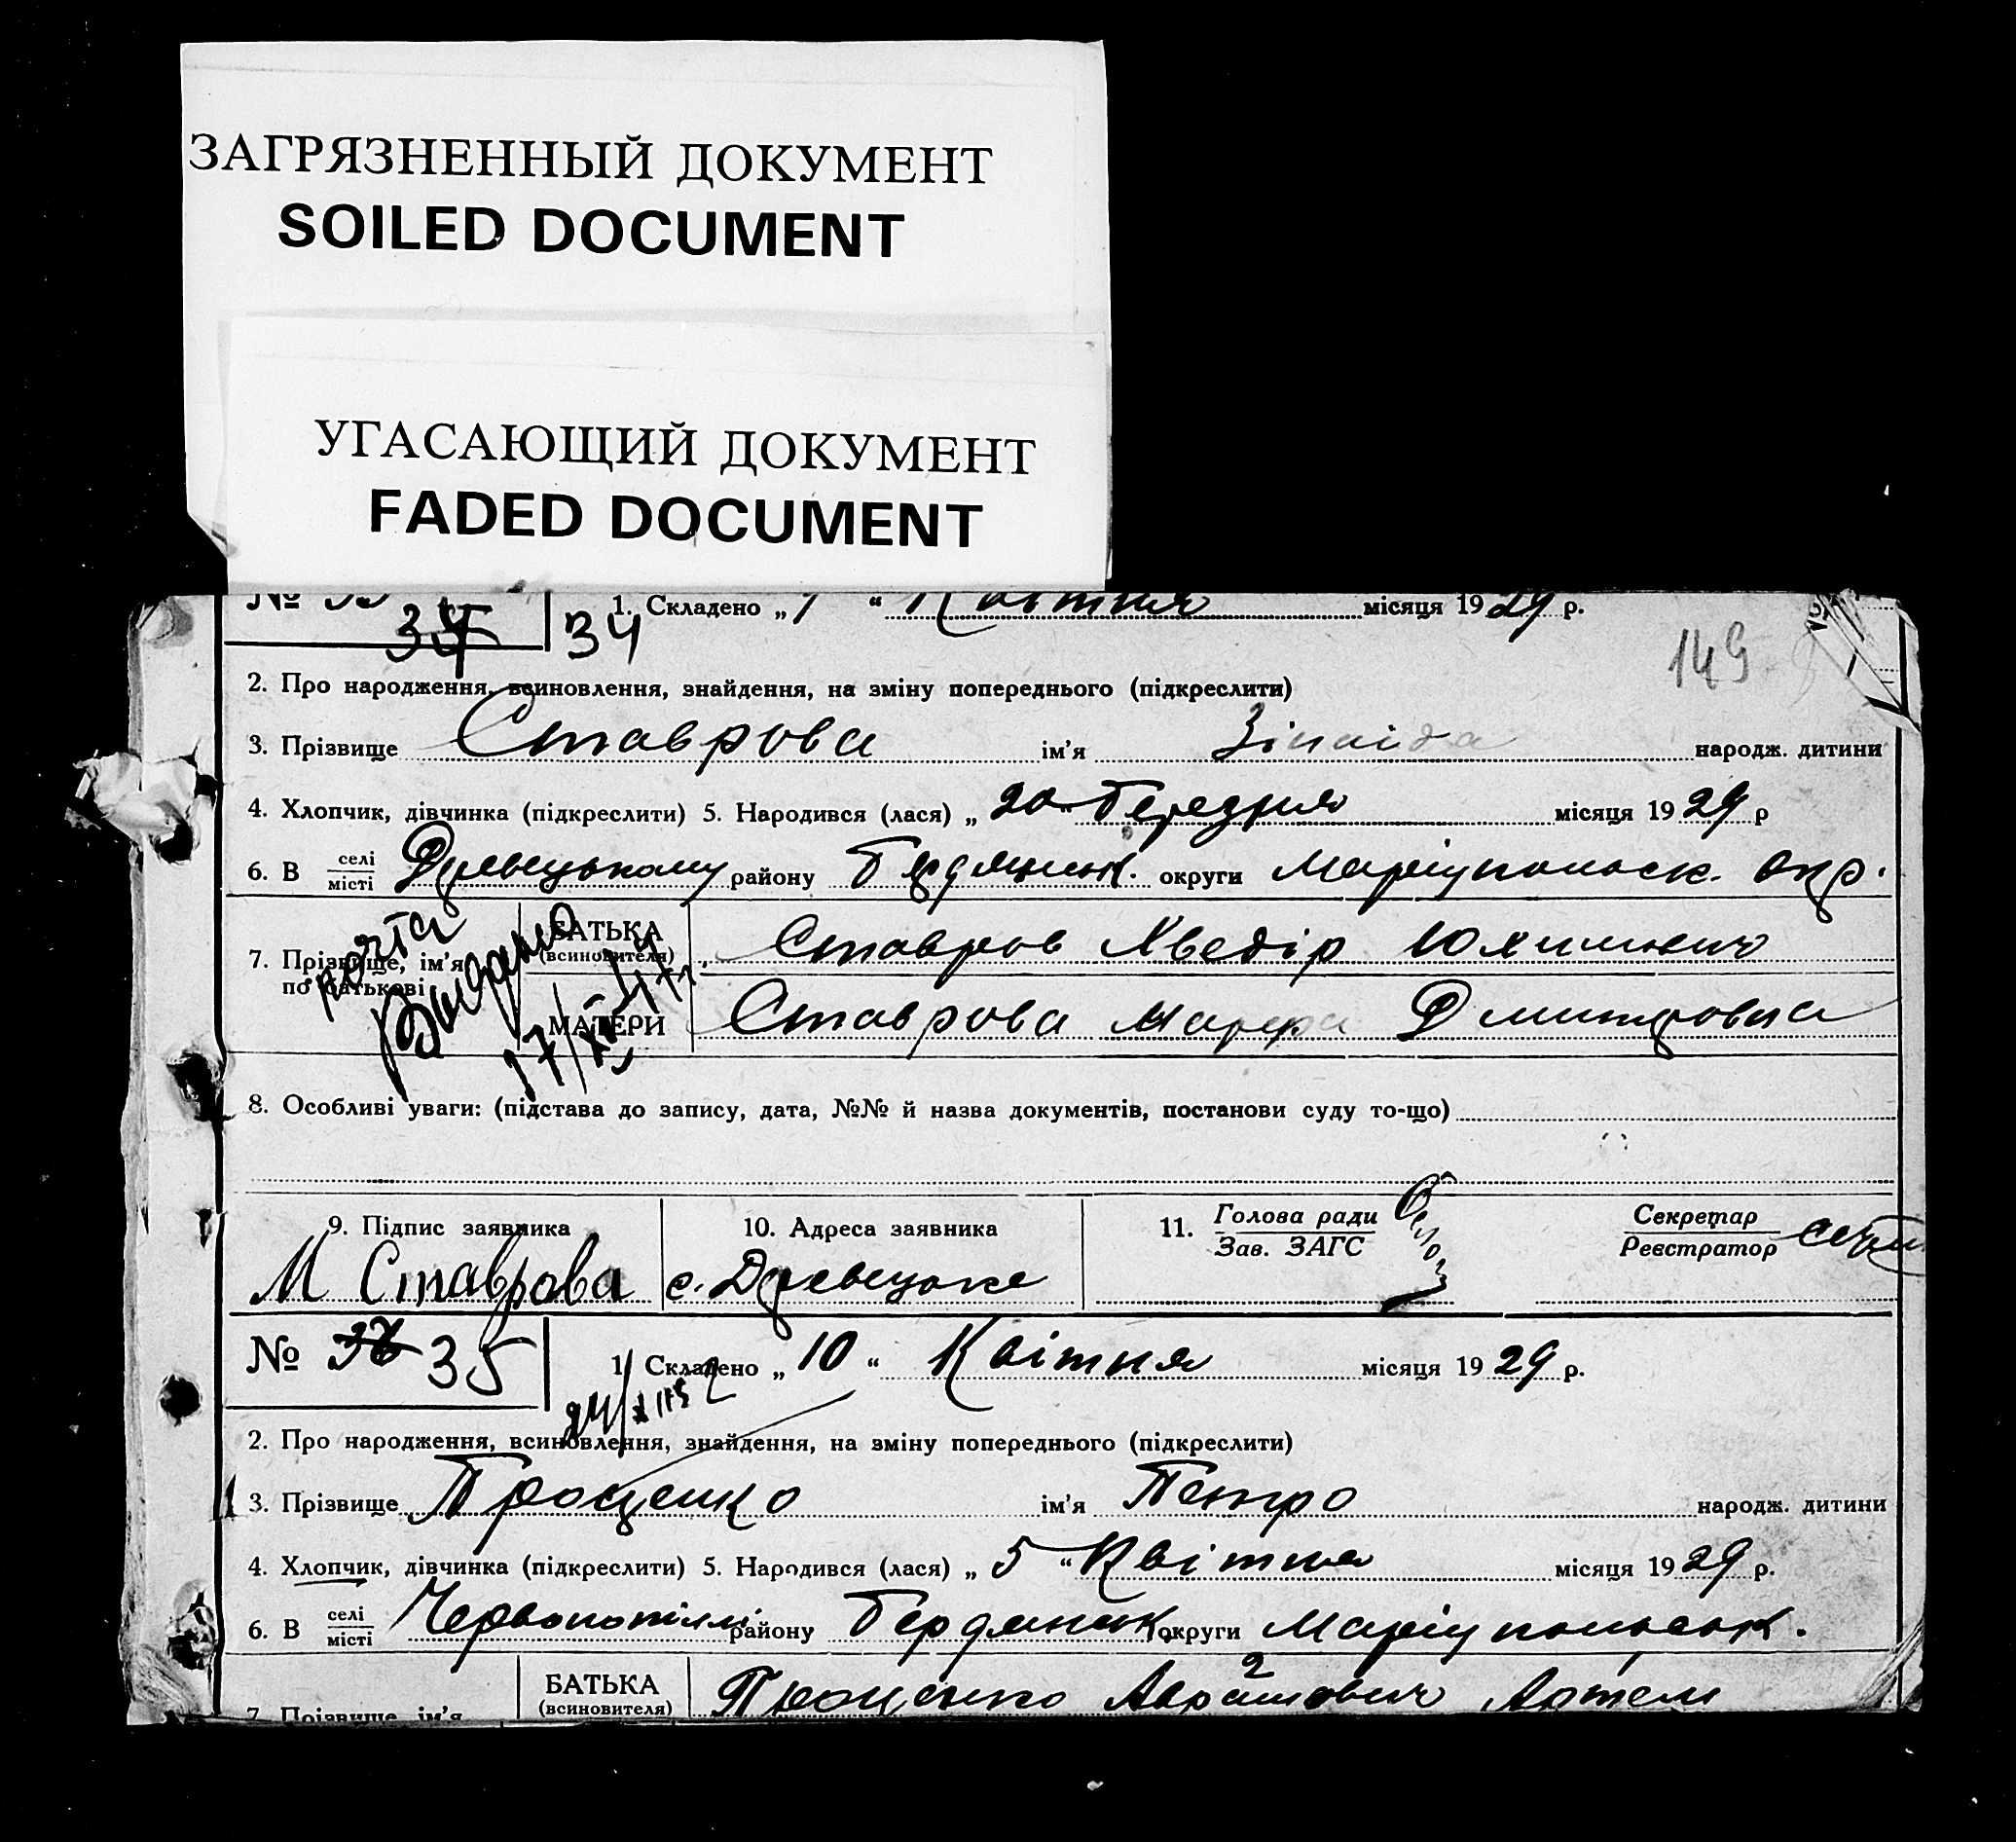 ЗАГРЯЗНЕННЫЙ ДОКУМЕНТ
SOILED DOCUMENT
УГАСАЮЩИЙ ДОКУМЕНТ
FADED DOCUMENT
№ 34 1. Складено „ 7 “ Квітня місяця 1929 р.
149
2. Про народження, всиновлення, знайдення, на зміну попереднього (підкреслити)
3. Прізвище Ставрова ім'я Зінаїда народж. дитини
4. Хлопчик, дівчинка (підкреслити) 5. Народився (лася) „ 20 “ Березня місяця 1929 р
6. В селі місті району Бердянськ. округи Маріупольск. окр.
7. Прізвище, ім'я по батькові
БАТЬКА (всиновителя) Ставров Хведір Юхимович
МАТЕРИ Ставрова Марфа Дмитровна
почта
Выдано
17/XII 47
8. Особливі уваги: (підстава до запису, дата, №№ й назва документів, постанови суду то-що)
9. Підпис заявника 10. Адреса заявника 11. Голова ради Зав. ЗАГС Секретар Реєстратор
М Ставрова с.
№ 36 35 1. Складено „ 10 “ Квітня місяця 1929 р.
2. Про народження, всиновлення, знайдення, на зміну попереднього (підкреслити)
3. Прізвище Проценко ім'я Петро народж. дитини
4. Хлопчик, дівчинка (підкреслити) 5. Народився (лася) „ 5 “ Квітня місяця 1929 р.
6. В селі місті району Бердянськ округи Маріупольськ.
7. Прізвище, ім'я БАТЬКА (всиновителя) Проценко Аврамович Артем